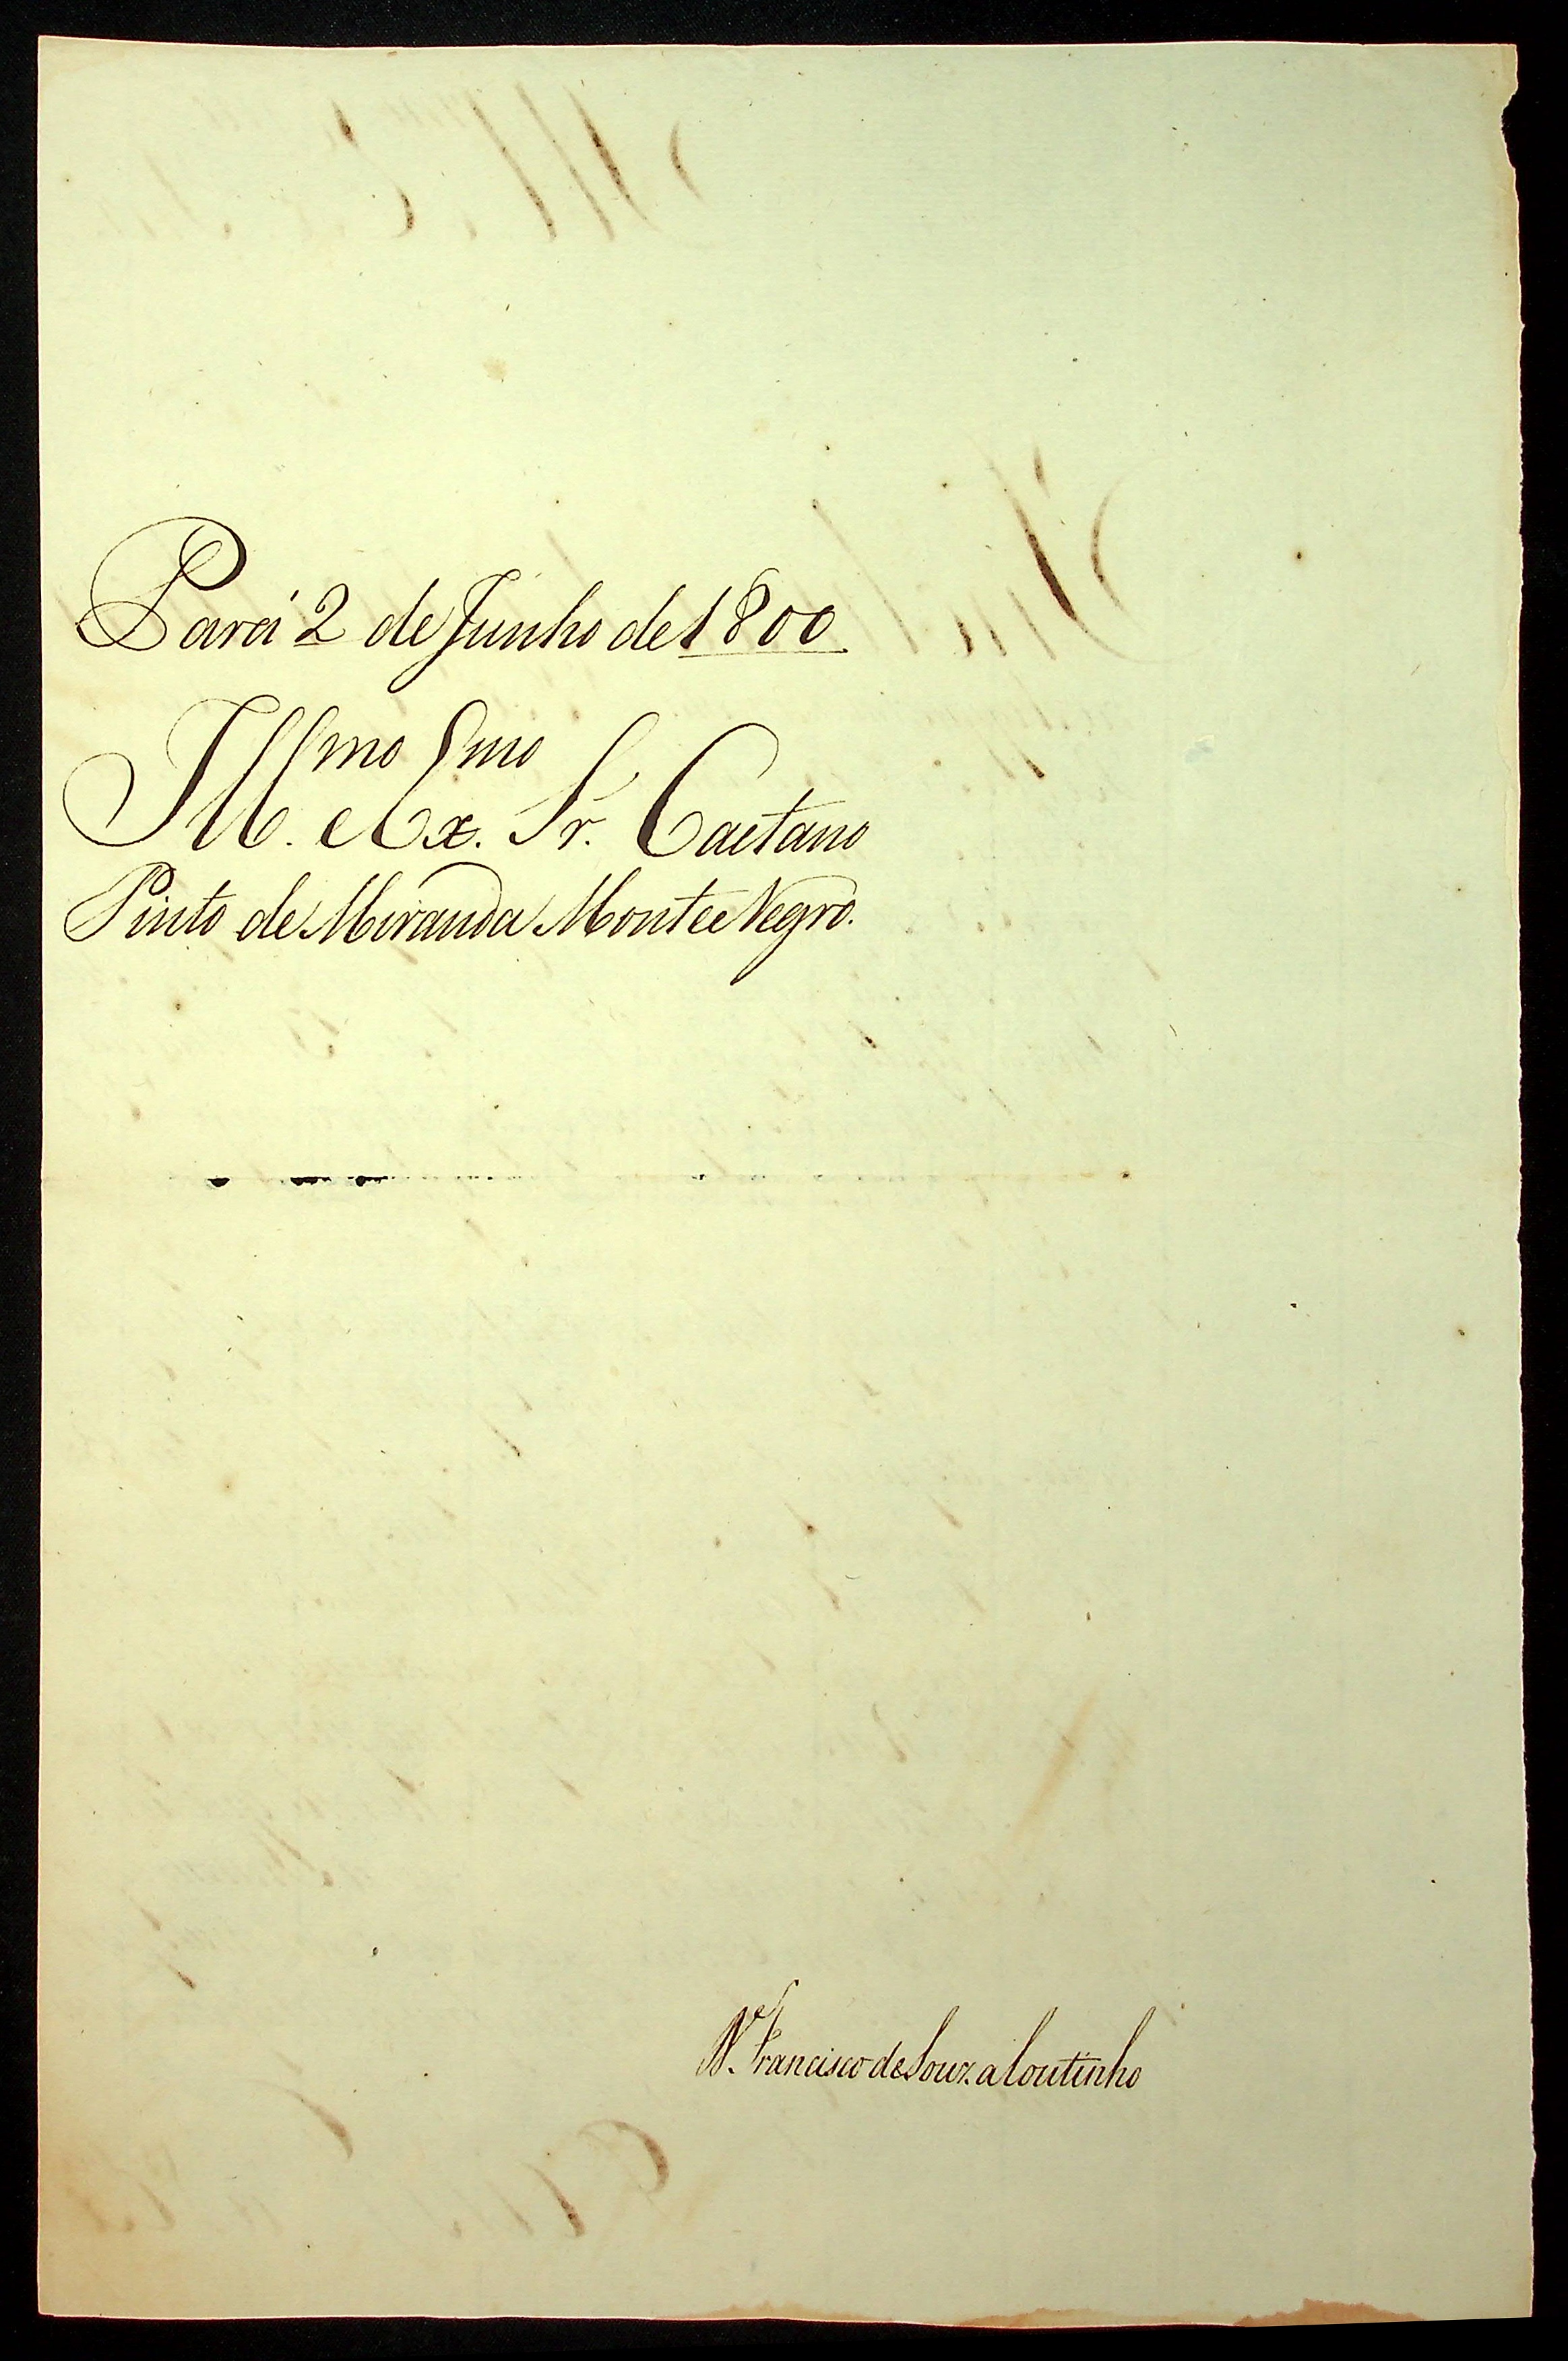 Pará 2 de Junho de 1800
Ill.mo e Ex.mo Sr. Caetano
Pinto de Miranda Monte Negro.
Francisco de Souza Coutinho